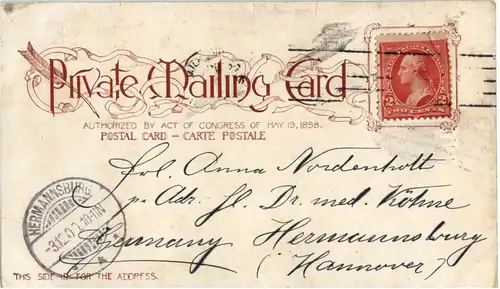 Private Mailing Card
AUTHORIZED BY ACT OF CONGRESS OF MAY 19, 1898.
POSTAL CARD – CARTE POSTALE
Frl. Anna Nordenholt
p. Adr. Hl. Dr. med. Köhne
Germany Hermannsburg
(Hannover)
HERMANNSBURG
THIS SIDE IS FOR THE ADDRESS.